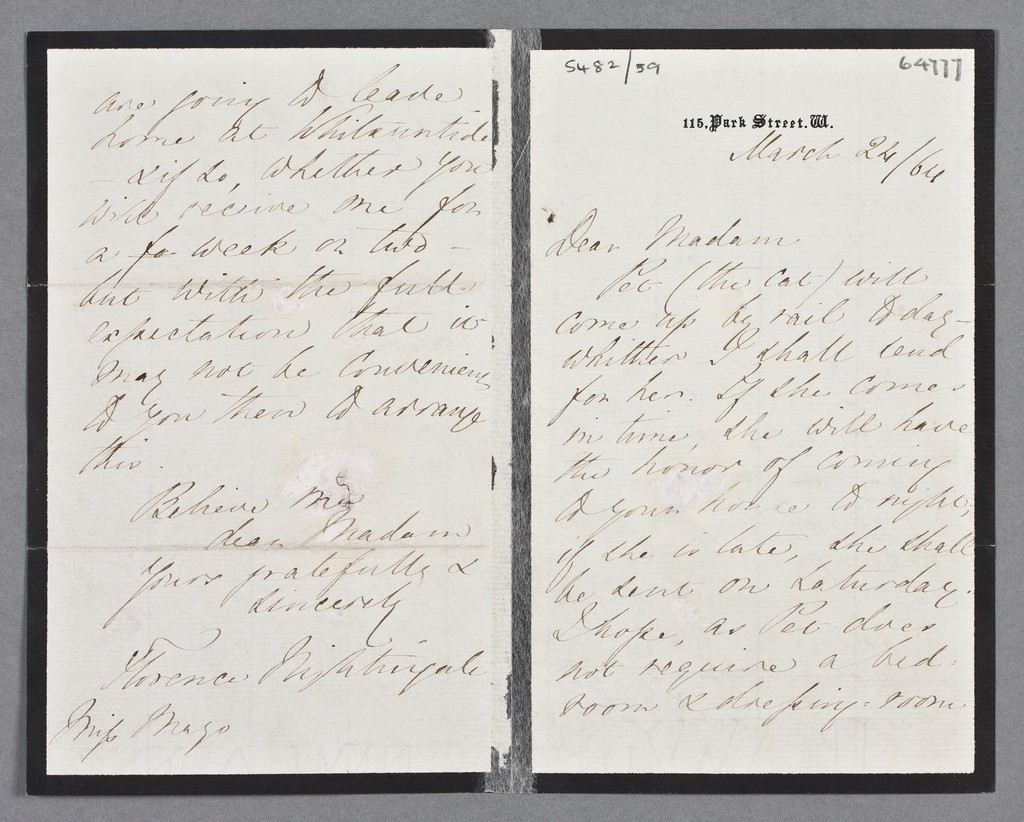 5482/59
64777
115, Park Street. W.
March 24/64
Dear Madam
Pet (the cat) will
come up by rail to day -
whither I shall send
for her. If she comes
in time, she will have
the honor of coming
to your house to night,
if she is late, she shall
be sent on Saturday.
I hope, as Pet does
not require a bed=
room & dressing=room
are going to leave
home at Whitsuntide
- & if so, whether you
will receive me for
a fo week or two -
but with the full
expectation that it
may not be convenient
to you then to arrange
this.
Believe me
dear Madam
yours gratefully &
sincerely
Florence Nightingale
Miss Mayo